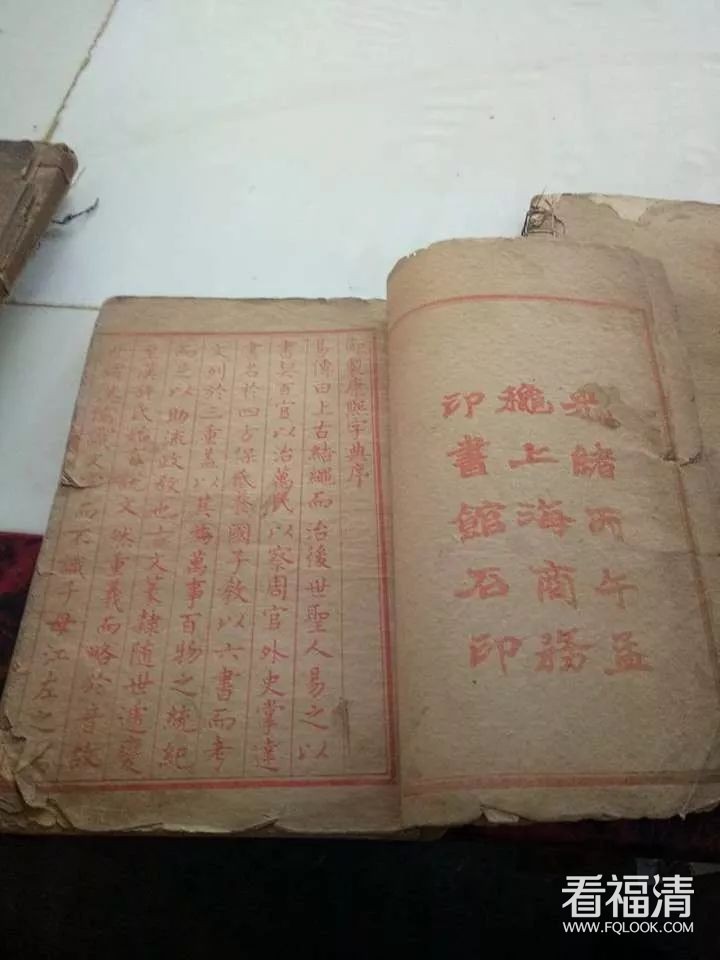 光緒丙午孟
穐上海商務
印書館石印
御製康熙字典序
易傳曰上古結繩而治後世聖人易之以
書契百官以治萬民以察周官外史掌達
書名於四方保氏養國子教以六書而考
文列於三重蓋以其為萬事百物之統紀
而足以助流政教也古文篆隸隨世遞變
至漢許氏始有說文然重義而略於音故
世謂漢儒識文而不識子母江左之
看福清
WWW.FQLOOK.COM